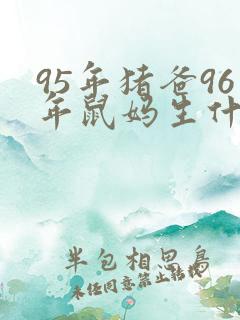 95年猪爸96
年鼠妈生什
半包相思鸟
未经同意禁止转载